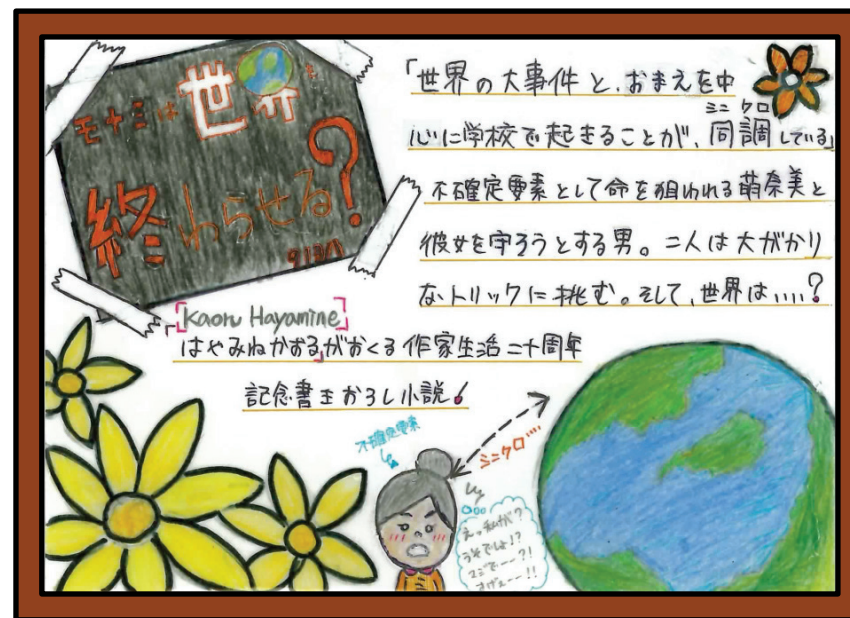 モナミは世界を
終わらせる?
「世界の大事件と、おまえを中
心に学校で起きることが、同調している」
シンクロ
不確定要素として命を狙われる萌奈美と
彼女を守ろうとする男。二人は大がかり
なトリックに挑む。そして、世界は....?
「Kaoru Hayamine」
「はやみねかおる」がおくる作家生活二十周年
記念書きおろし小説!
不確定要素
シンクロ....
えっ私が?
うそでしょ!?